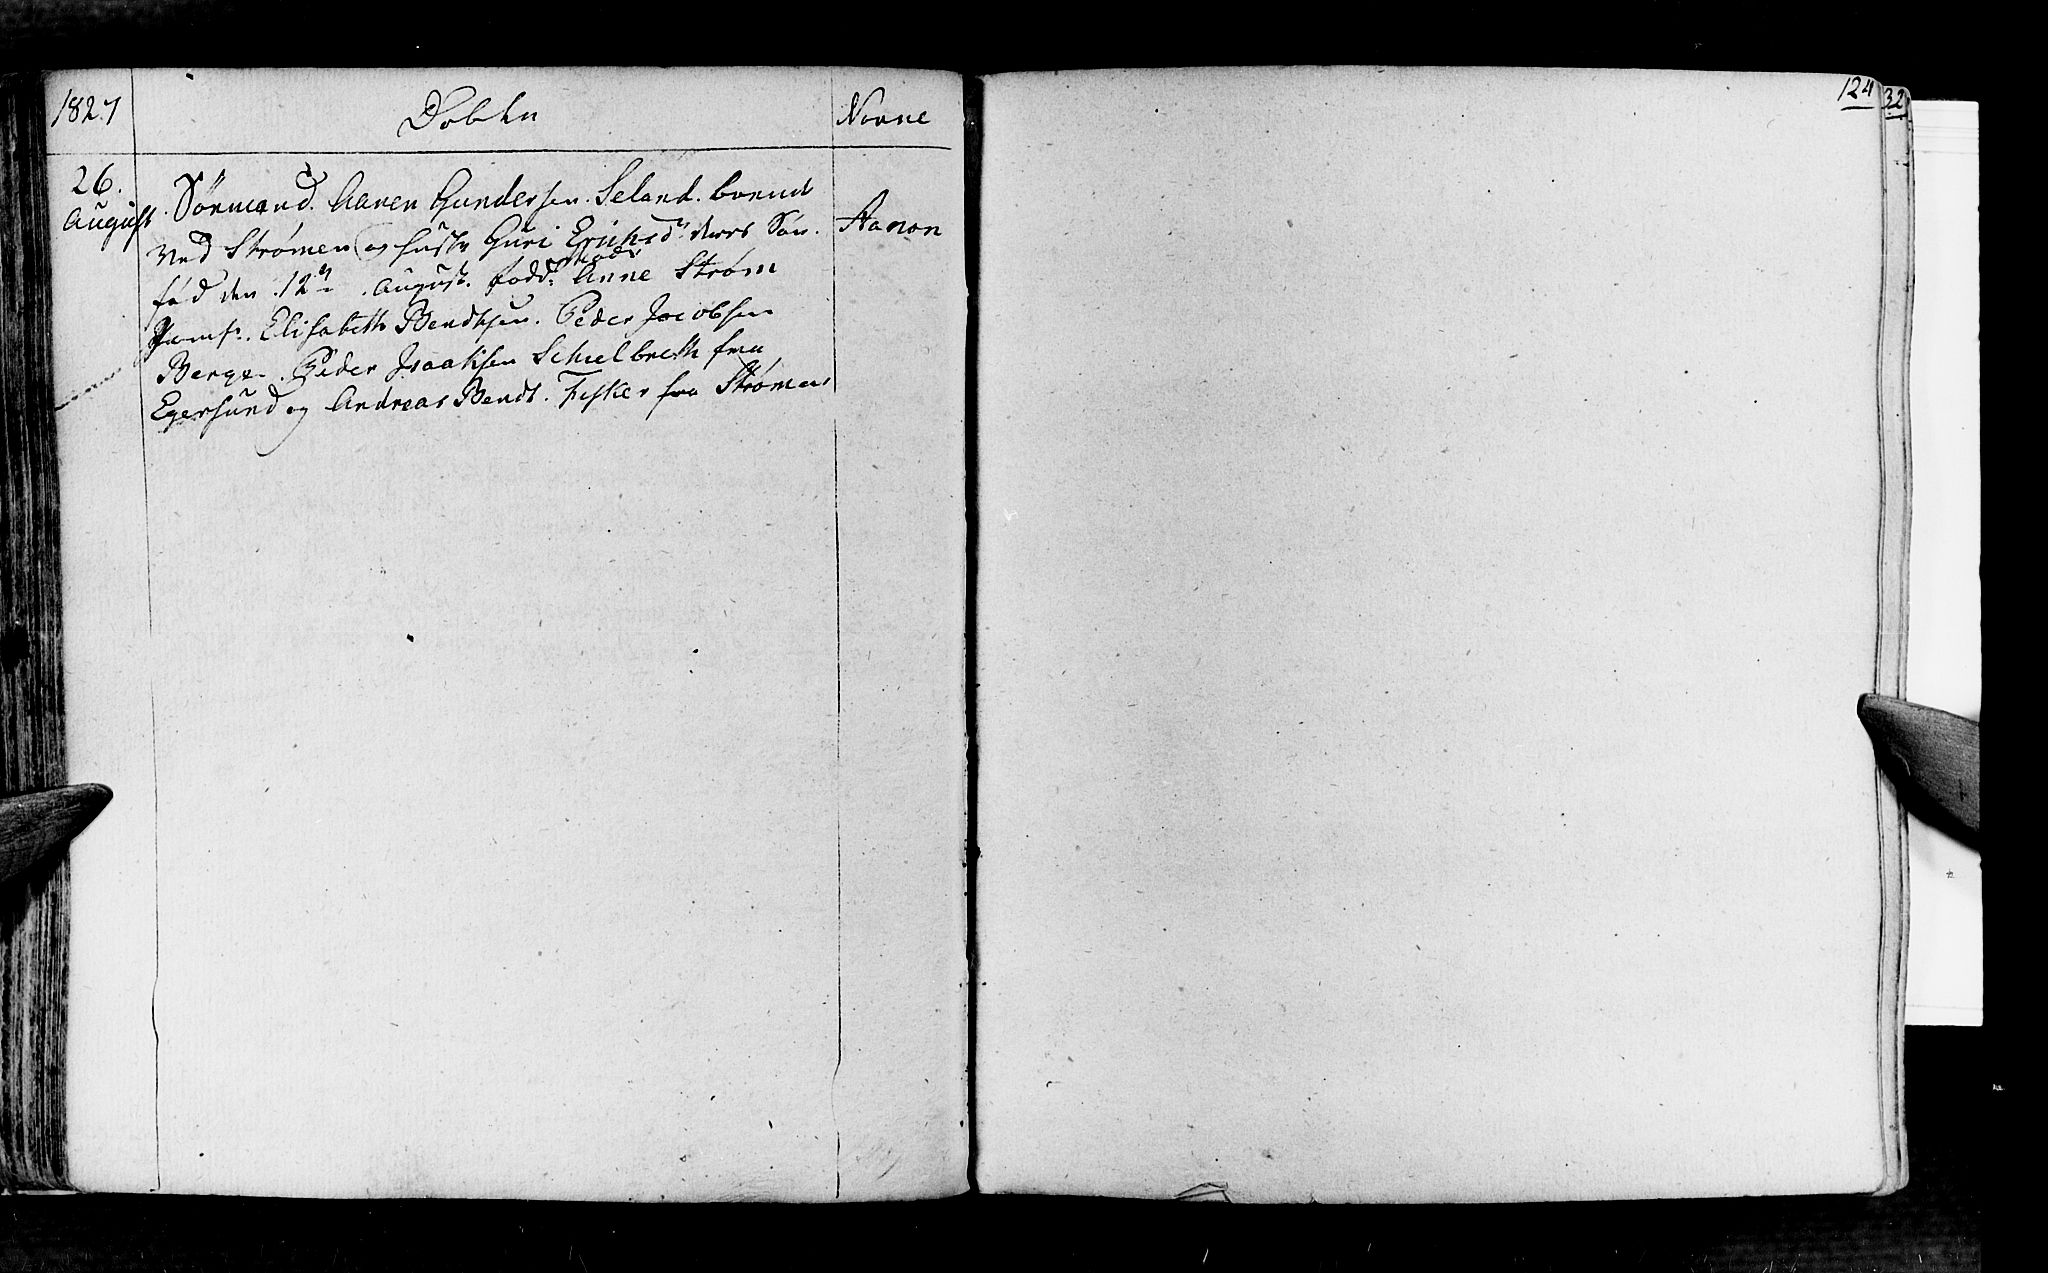 1827
Døbte
Navne
26.
August
Sørmand. Aanen Gundersen. Seland. boend
ved Strømen og hustr Guri Erichsd. deres Søn.
Aanon
fød den 12te August. fadd: Anne Strøm
Jomf. Elisabeth Bendtsen. Peder Jacobsen
Berge. Peder Isaaksen Schielbreth fra
Egersund og Andreas Bendt. Fisker fra Strømen
124
32